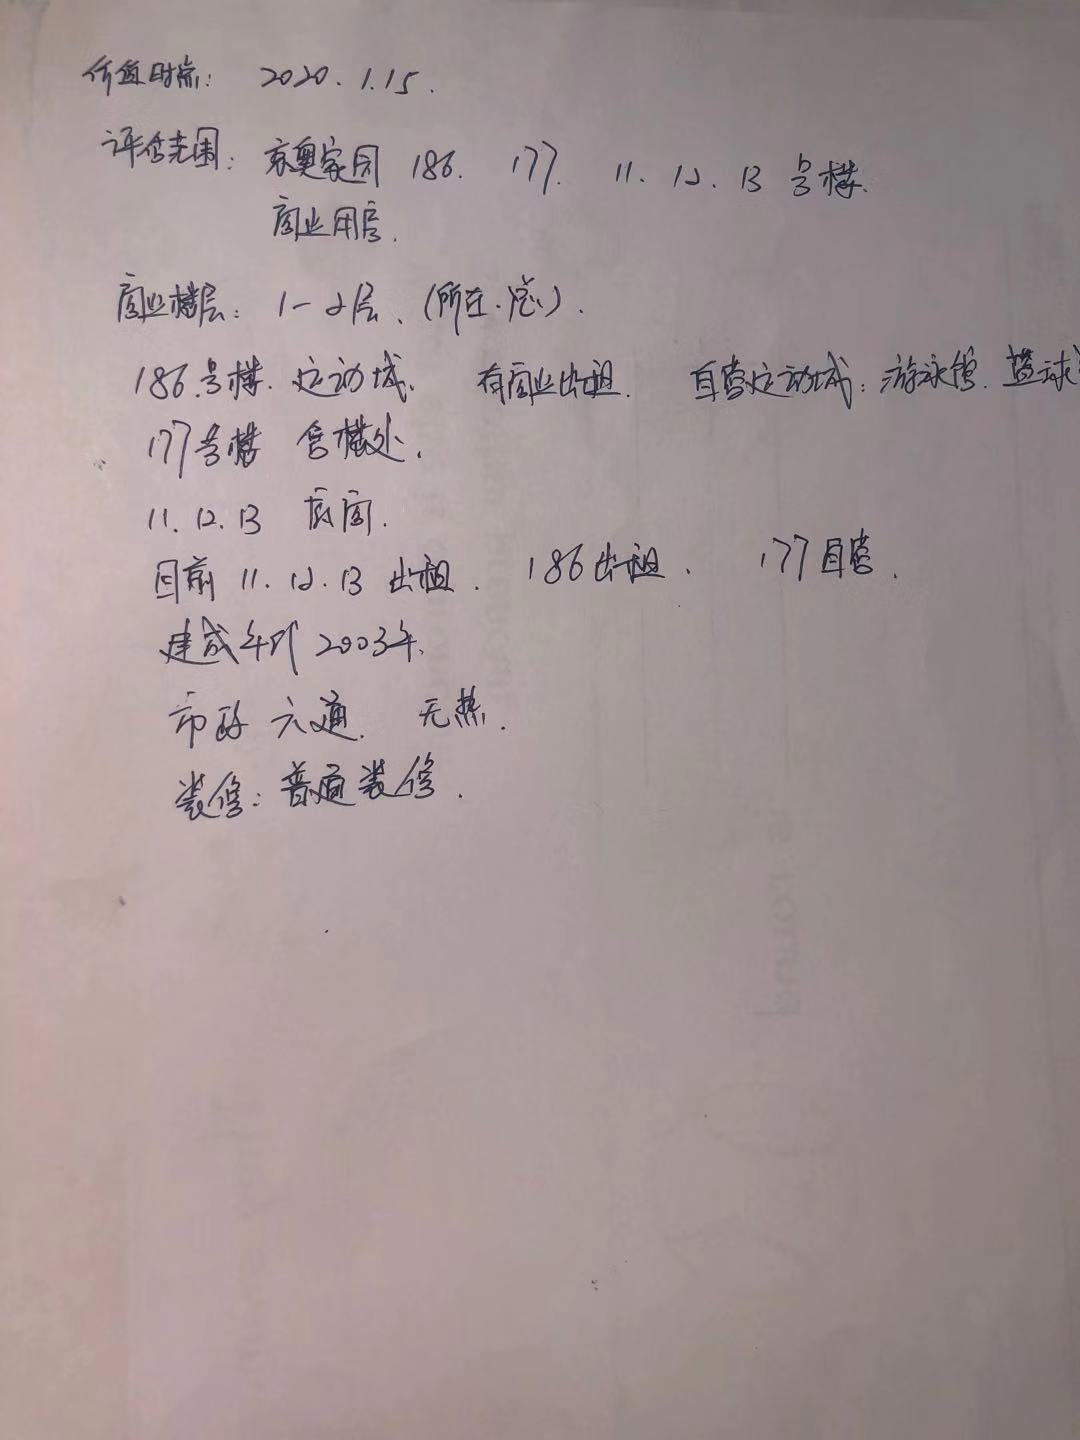 价值时点: 2020.1.15.
评估范围: 京奥家园 186. 177. 11. 12. 13 号楼.
商业用房.
商业楼层: 1-2层、(所在.总).
186号楼. 运动城. 有商业出租. 自营运动城: 游泳馆. 篮球
177号楼 售楼处.
11. 12. 13 底商.
目前 11. 12. 13 出租. 186出租. 177自营.
建成年代 2003年.
市政 六通. 无热.
装修: 普通装修.